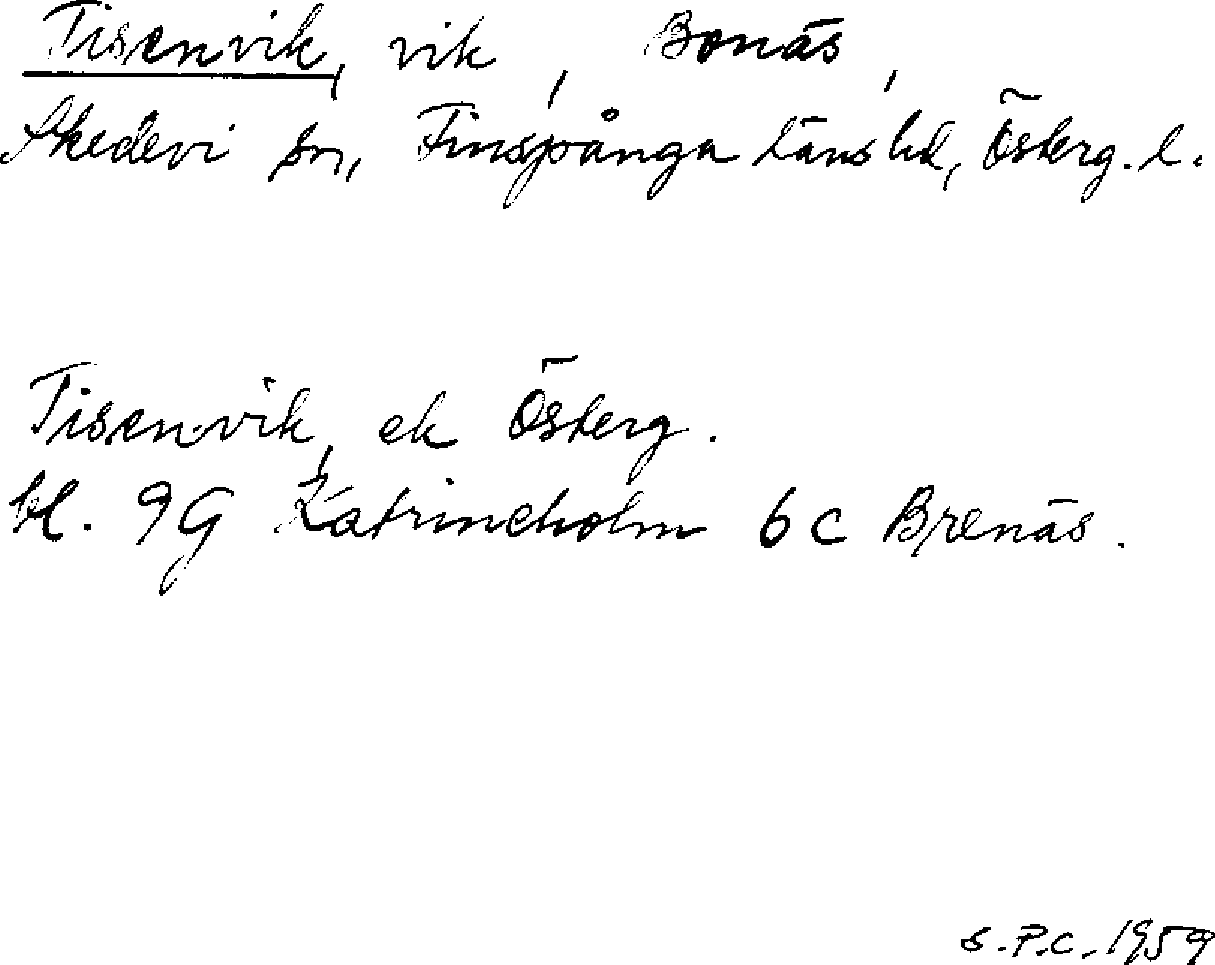 Tisenvik, vik, Bonäs,
Skedevi sn, Finspånga läns hd, Österg. l.
Tisenvik, ek Österg.
bl. 9G Katrineholm 6c Brenäs.
S.P.C. 1959